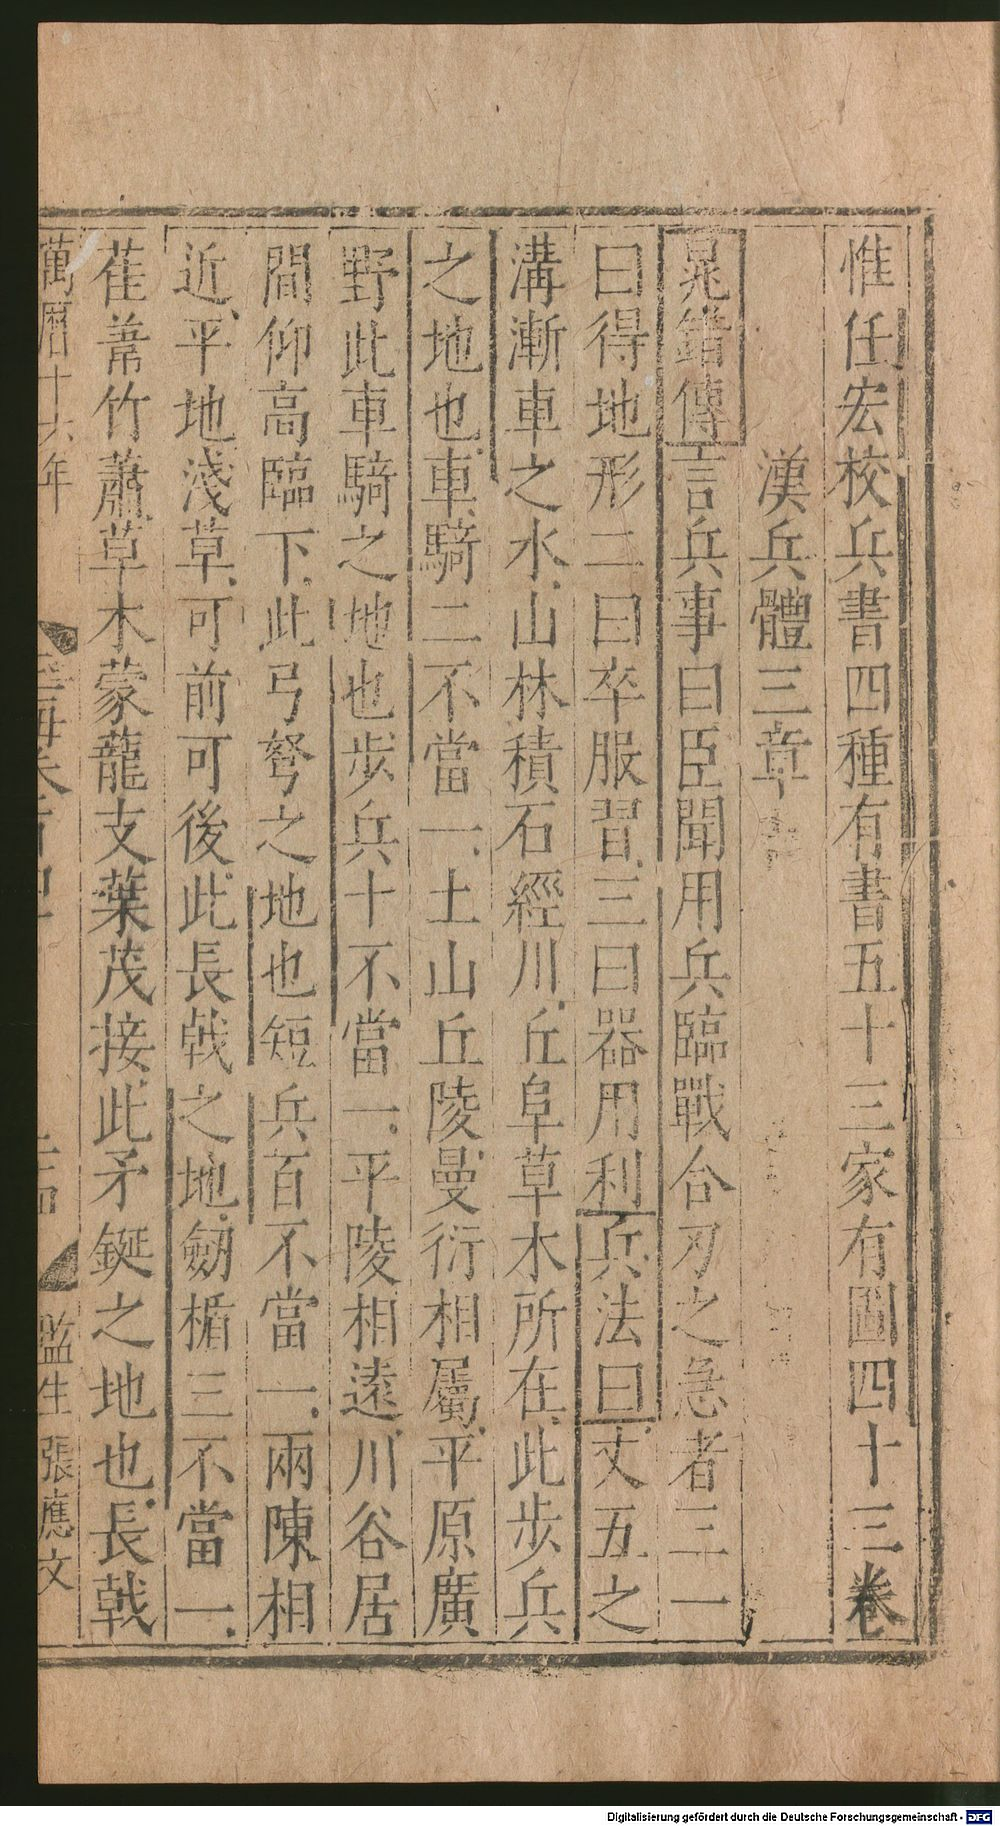 惟任宏校兵書四種有書五十三家有圖四十三卷
漢兵體三章
晁錯傳言兵事曰臣聞用兵臨戰合刃之急者三一
曰得地形二曰卒服習三曰器用利兵法曰丈五之
溝漸車之水山林積石經川丘阜草木所在此步兵
之地也車騎二不當一土山丘陵曼衍相屬平原廣
野此車騎之地也步兵十不當一平陵相遠川谷居
間仰高臨下此弓弩之地也短兵百不當一兩陳相
近平地淺草可前可後此長戟之地劒楯三不當一
萑葦竹蕭草木蒙蘢支葉茂接此矛鋋之地也長戟
萬曆十六年
監生張應文
Digitalisierung gefördert durch die Deutsche Forschungsgemeinschaft - DFG